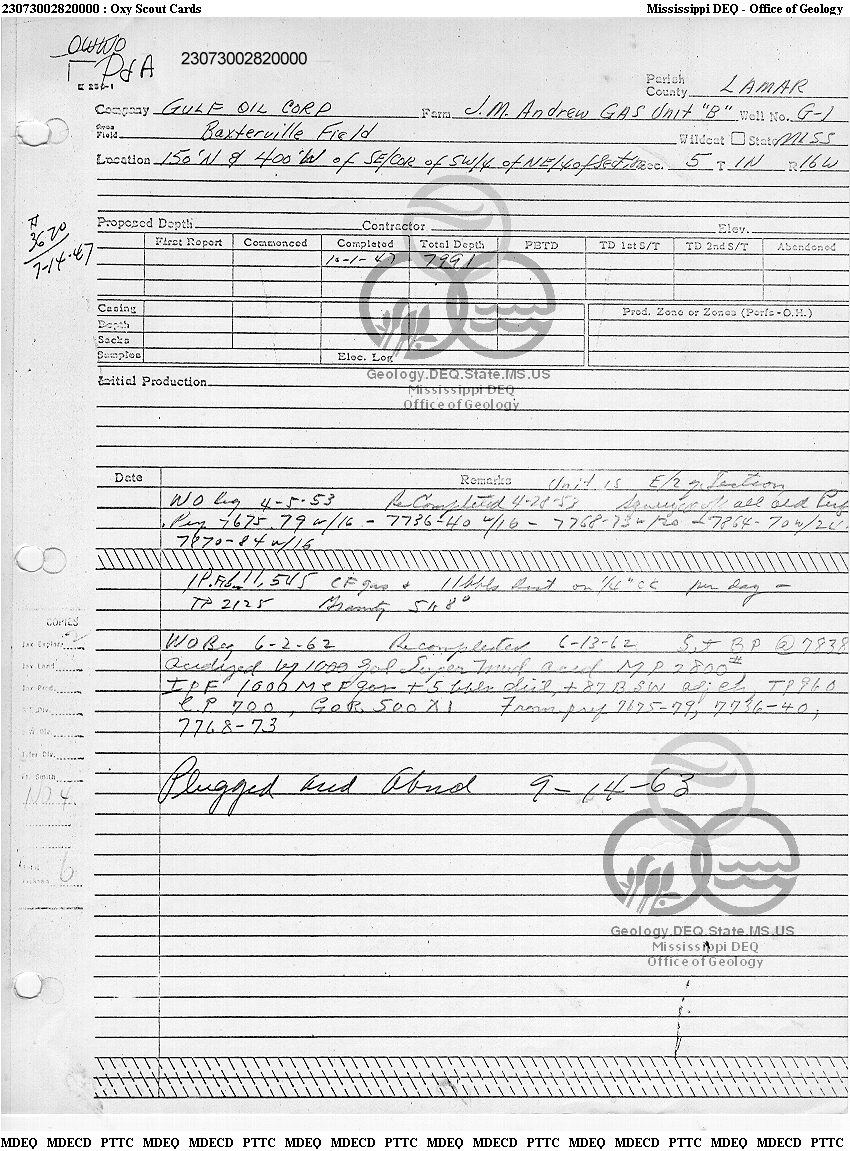 23073002820000 : Oxy Scout Cards Mississippi DEQ - Office of Geology
OWWO
P&A 23073002820000
Parish
County LAMAR
Company GULF OIL CORP Farm J.M. Andrew GAS Unit "B" Well No. G-1
Field Baxterville Field Wildcat State MISS
Location 150' N & 400' W of SE/COR of SW/4 of NE/4 of Section Sec. 5 T 1N R 16W
# 3670
7-14-47
Proposed Depth Contractor Elev.
First Report Commenced Completed Total Depth PBTD TD 1st S/T TD 2nd S/T Abandoned
10-1-47 7991
Casing Prod. Zone or Zones (Perfs - O.H.)
Depth
Sacks
Samples Elec. Log
Geology.DEQ.State.MS.US
Mississippi DEQ
Office of Geology
Initial Production
Date Remarks Unit is E/2 of Section
WO Beg 4-5-53 ReCompleted 4-28-53 all old Perf
7675-79 w/16 - 7736-40 w/16 - 7768-73 w/20 - 7864-70 w/24
7870-84 w/16
11,545 CF gas + 11 bbls dist on 1/4" CK per day -
TP 2125 Gravity
COPIES
WO Beg 6-2-62 Recompleted 6-13-62 Set BP @ 7838
acidized w/ 1000 gal Super mud acid MP 2800#
IPF 1000 MCF gas + 5 bbls dist, + 87 BSW TP 960
CP 700, GOR 500 X1 From perf 7675-79; 7736-40;
7768-73
Plugged and Abnd 9-14-63
6
Geology.DEQ.State.MS.US
Mississippi DEQ
Office of Geology
MDEQ MDECD PTTC MDEQ MDECD PTTC MDEQ MDECD PTTC MDEQ MDECD PTTC MDEQ MDECD PTTC MDEQ MDECD PTTC